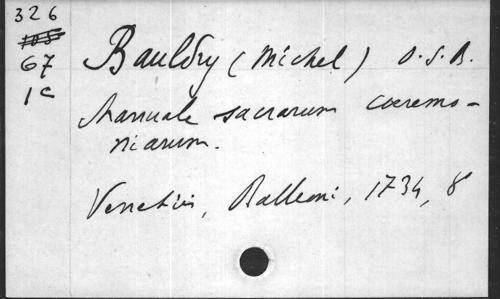 326
105
67
1c
Bauldry (Michel) O.S.B.
Manuale sacrarum caeremo-
niarum.
Venetiis, Balleoni, 1734, 8°